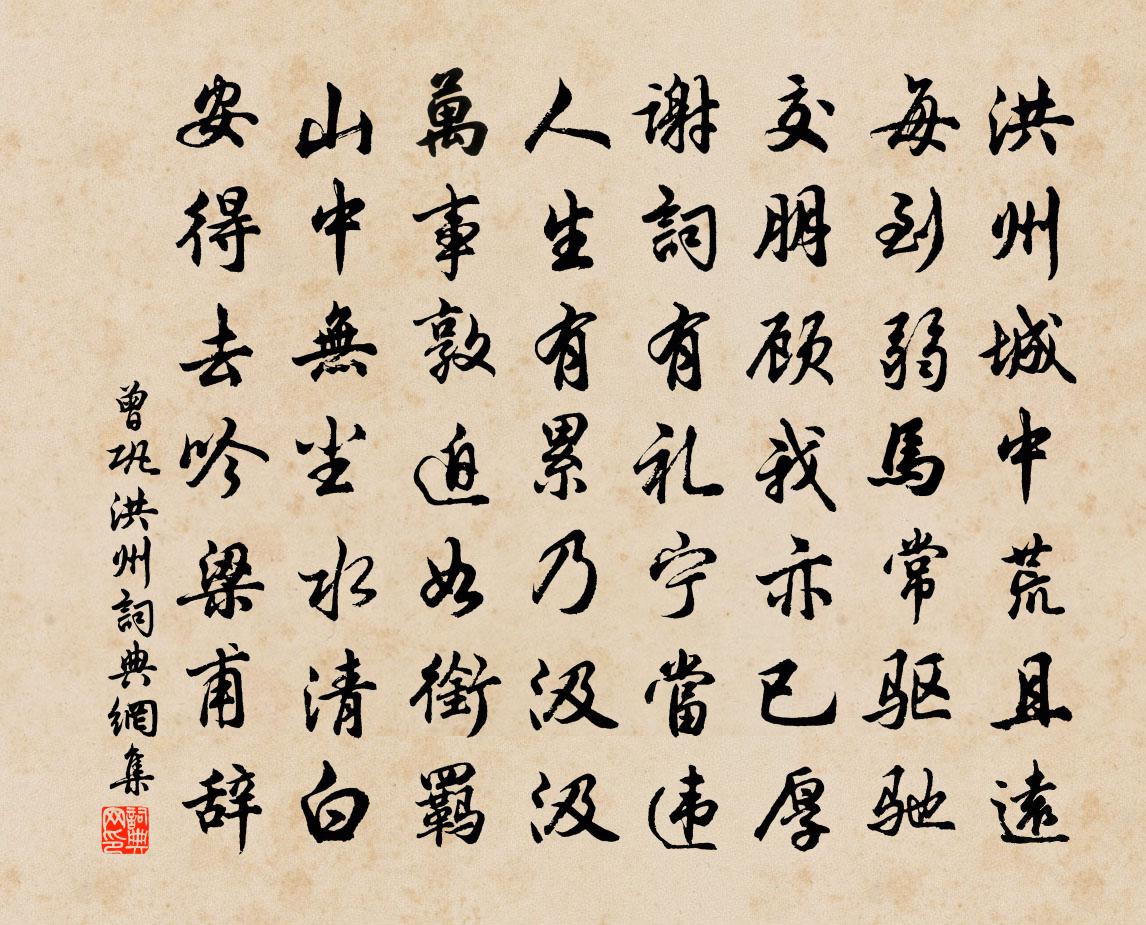 洪州城中荒且遠
每到弱馬常驱驰
交朋顾我亦已厚
谢詞有礼宁當违
人生有累乃汲汲
萬事敦迫如銜羁
山中無尘水清白
安得去吟梁甫辞
曾巩洪州詞典網集
詞典网印